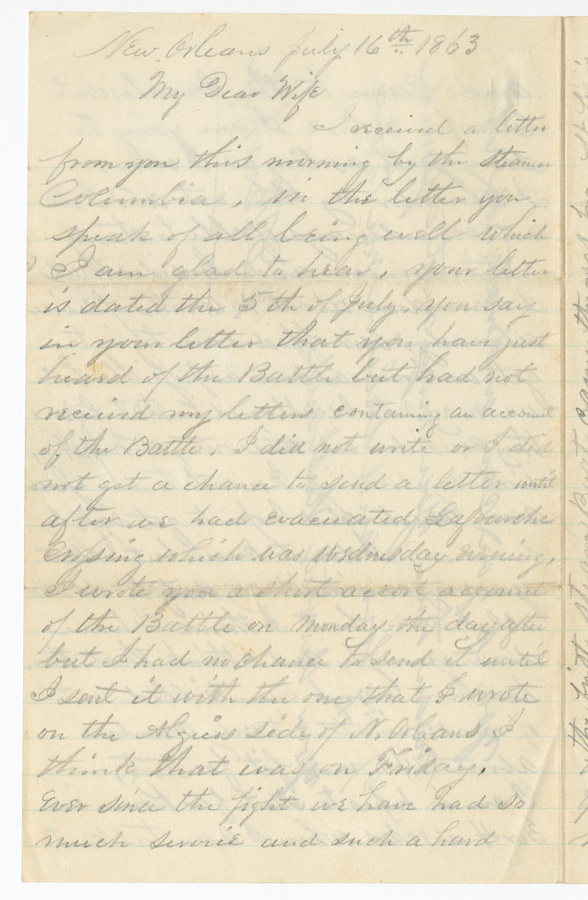 New Orleans July 16th 1863
My Dear Wife
I received a letter
from you this morning by the Steamer
Columbia, in the letter you
speak of all being well which
I am glad to hear, your letter
is dated the 5th of July. you say
in your letter that you have just
heard of the Battle but had not
received my letters containing an account
of the Battle. I did not write or I did
not get a chance to send a letter until
after we had evacuated Lafourche
Crossing which was wednesday evening,
I wrote you a short account
of the Battle on Monday the day after
but I had no chance to send it until
I sent it with the one that I wrote
on the Algiers side of N. Orleans I
think that was on Friday.
Ever since the fight we have had so
much service and such a hard